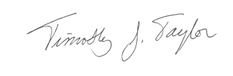 Timothy J. Taylor